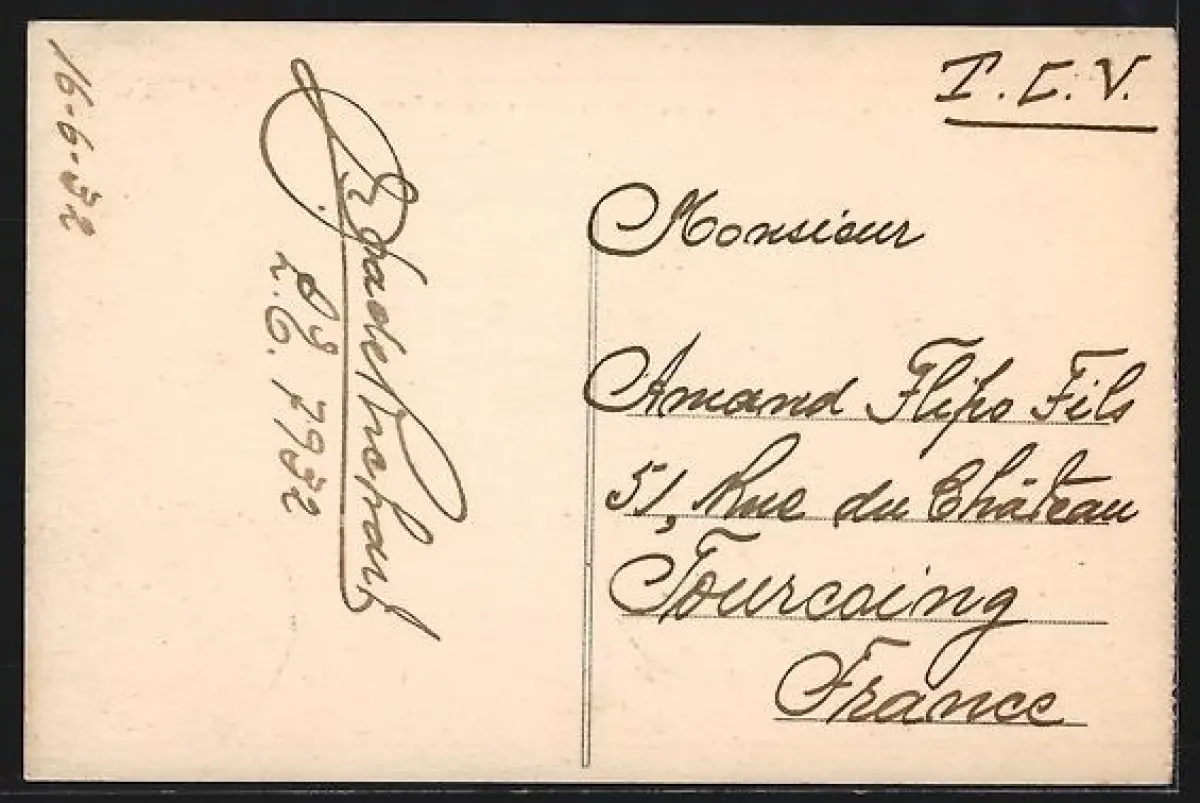 16-6-32
2.6. 1932
T.C.V.
Monsieur
Amand Flipo Fils
51, Rue du Château
Tourcoing
France